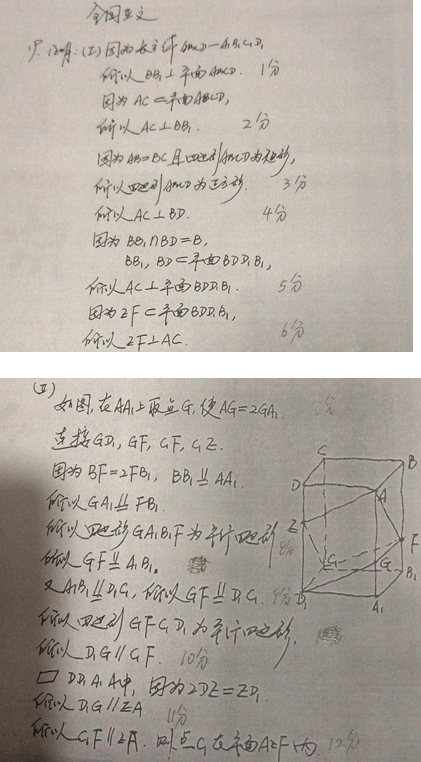 全国亚文
只.证明:(I)因为长方体ABCD-A₁B₁C₁D₁
所以BB₁⊥平面ABCD. 1分
因为AC⊂平面ABCD,
所以AC⊥BB₁. 2分
因为AB=BC且四边形ABCD为矩形,
所以四边形ABCD为正方形. 3分
所以AC⊥BD. 4分
因为BB₁∩BD=B,
BB₁, BD⊂平面BDD₁B₁,
所以AC⊥平面BDD₁B₁. 5分
因为EF⊂平面BDD₁B₁,
所以EF⊥AC. 6分
(II)
如图,在AA₁上取点G,使AG=2GA₁.
连接GD₁, GF, C₁F, C₁E.
因为BF=2FB₁, BB₁∥AA₁
所以GA₁∥FB₁.
所以四边形GA₁B₁F为平行四边形 8分
所以GF∥A₁B₁.
又A₁B₁∥D₁C₁,所以GF∥D₁C₁. 9分
所以四边形GFC₁D₁为平行四边形.
所以D₁G∥C₁F. 10分
▱DD₁A₁A中,因为2DE=ED₁
所以D₁G∥EA 11分
所以C₁F∥EA. 则点C₁在平面AEF内. 12分
C
B
D
A
E
F
C₁
G
B₁
D₁
A₁